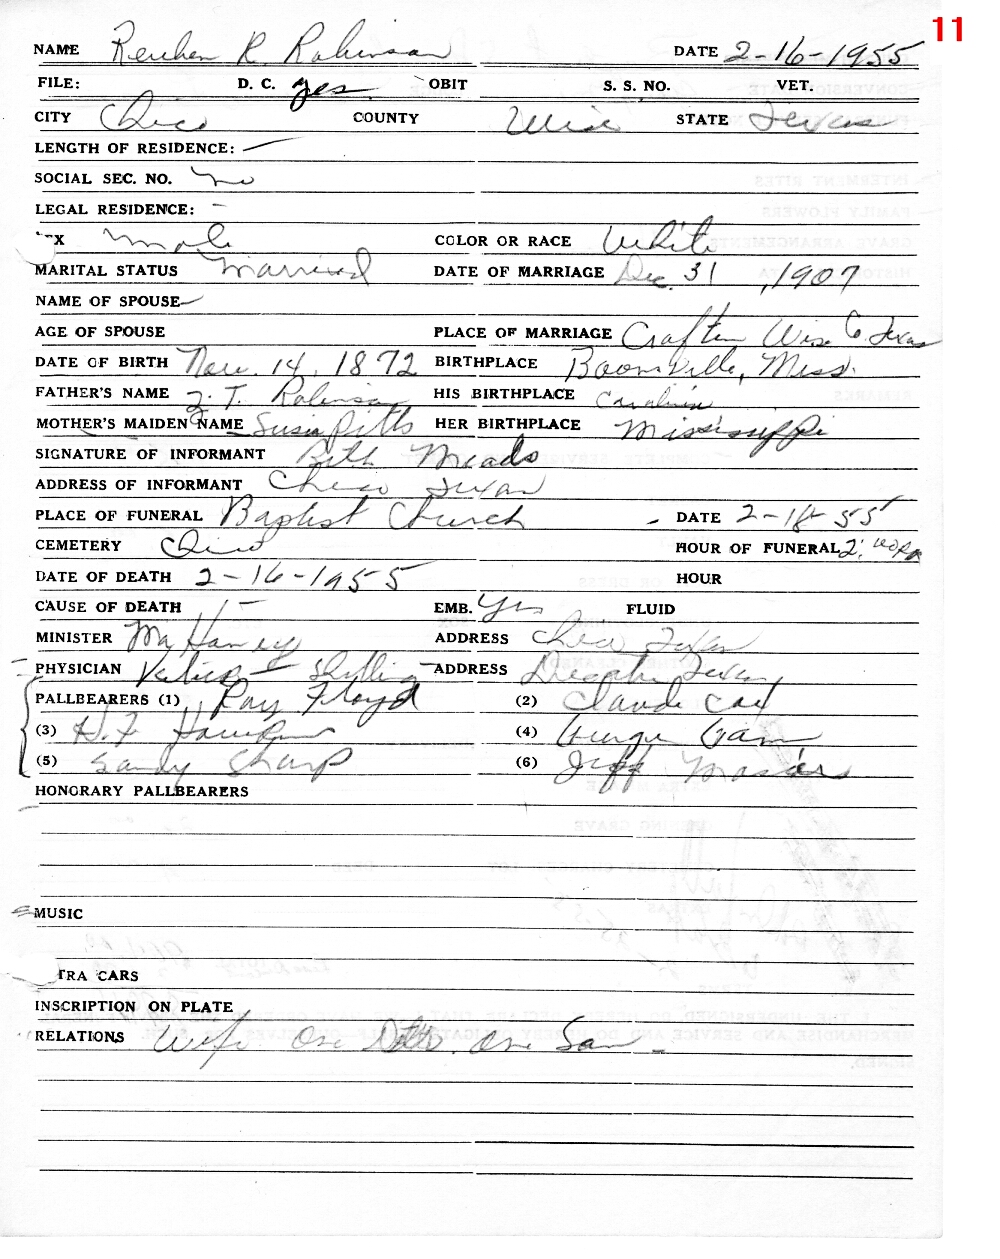 11
NAME Reuben R Robinson DATE 2-16-1955
FILE: D. C. yes OBIT S. S. NO. VET.
CITY Chico COUNTY Wise STATE Texas
LENGTH OF RESIDENCE: —
SOCIAL SEC. NO. no
LEGAL RESIDENCE: -
X male COLOR OR RACE White
MARITAL STATUS married DATE OF MARRIAGE Dec. 31, 1907
NAME OF SPOUSE
AGE OF SPOUSE PLACE OF MARRIAGE Crafton Wise Co Texas
DATE OF BIRTH Nov. 14, 1872 BIRTHPLACE Boonville, Miss.
FATHER'S NAME T. Robinson HIS BIRTHPLACE Carolina
MOTHER'S MAIDEN NAME Susie Pitts HER BIRTHPLACE Mississippi
SIGNATURE OF INFORMANT Beth Meads
ADDRESS OF INFORMANT Chico Texas
PLACE OF FUNERAL Baptist Church - DATE 2-18-55
CEMETERY Chico HOUR OF FUNERAL 2:00 PM
DATE OF DEATH 2-16-1955 HOUR
CAUSE OF DEATH EMB. Yes FLUID
MINISTER Mr Haney ADDRESS Chico Texas
PHYSICIAN ADDRESS Decatur Texas
PALLBEARERS (1) Ray Floyd (2) Claude Cox
(3) H.F (4) George
(5) Sandy Sharp (6) Jeff
HONORARY PALLBEARERS
MUSIC
TRA CARS
INSCRIPTION ON PLATE
RELATIONS Wife One Dttr. One Son -